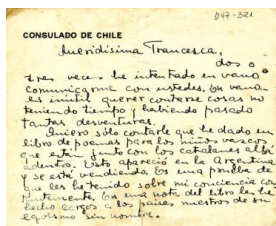 D47-321
CONSULADO DE CHILE
Queridísima Francesca,
dos o
tres veces he intentado en vano
comunicarme con ustedes. En vano
es inútil querer contarse cosas no
teniendo tiempo y habiendo pasado
tantas desventuras.
Quiero sólo contarle que he dado un
libro de poemas para los niños vascos
que están junto con los catalanes allá
adentro. Esto apareció en la Argentina
y se está vendiendo. Es una prueba de
que les he tenido sobre mi conciencia cons
tantemente. En una nota del libro les he
hecho cargos a los países nuestros de su
egoísmo sin nombre.